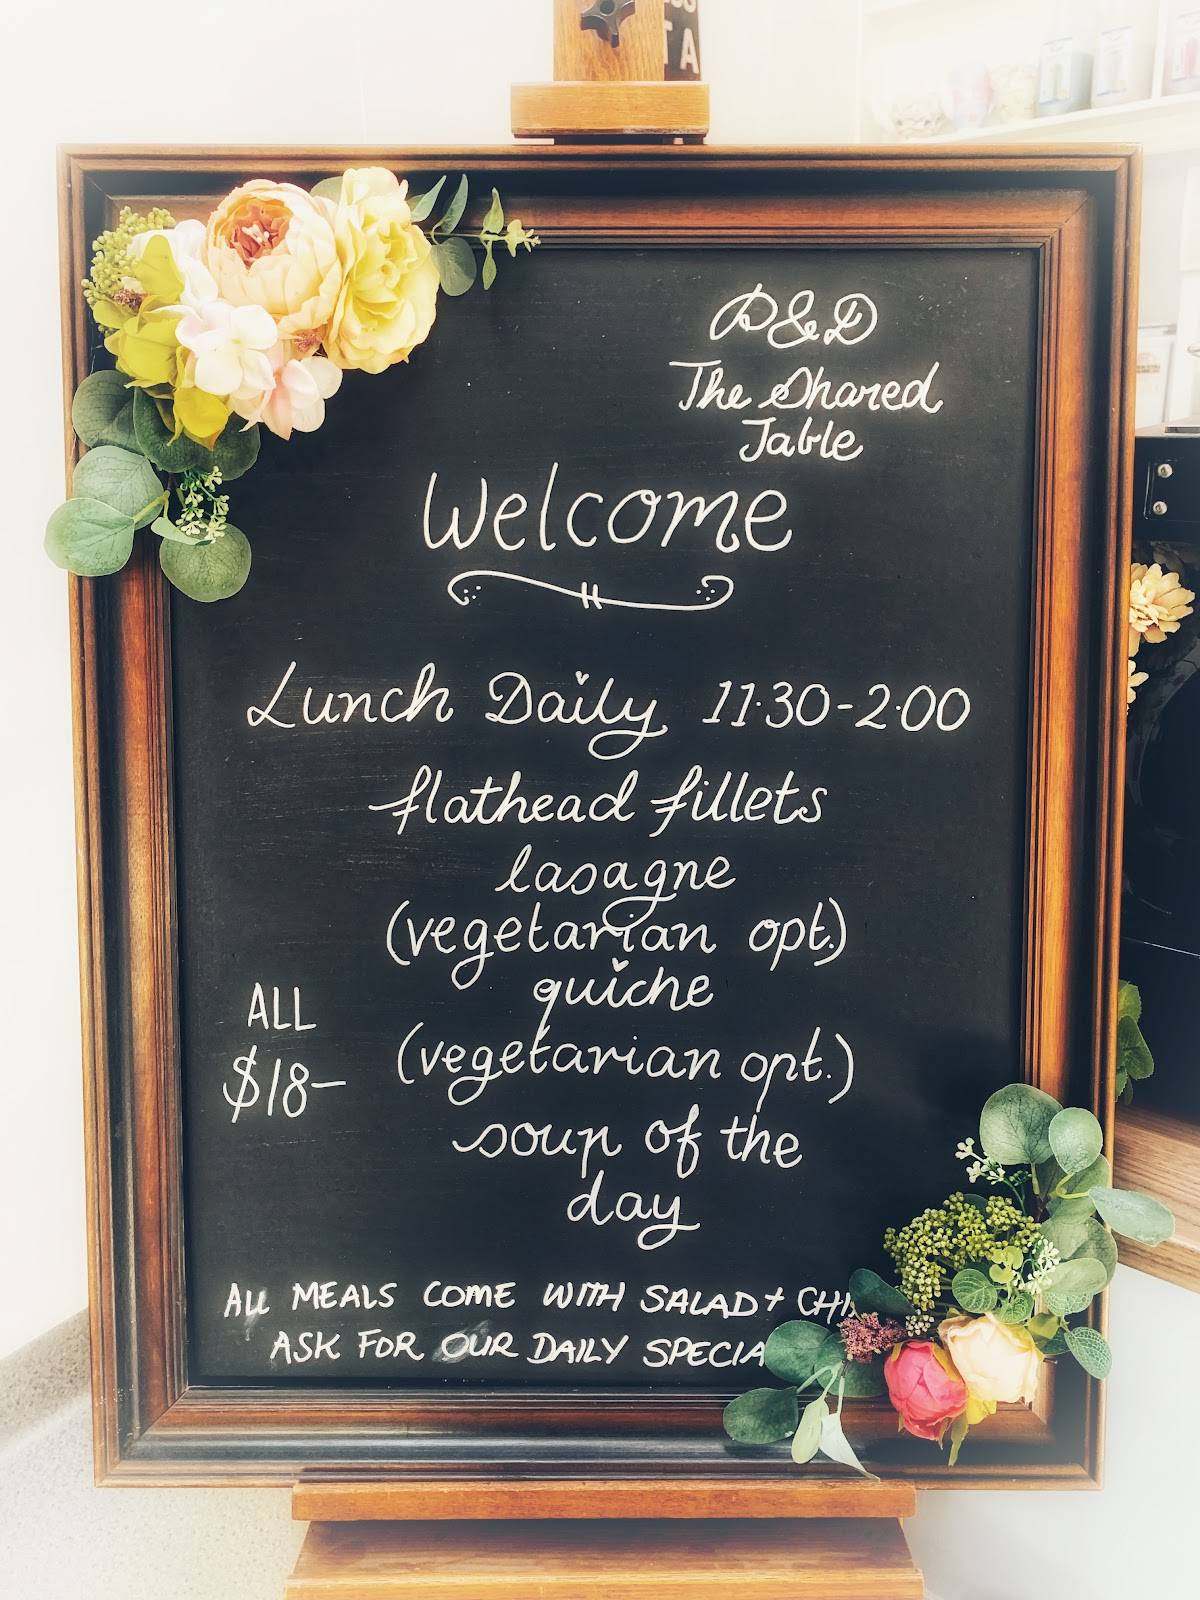 D&D
The Shared
Table
Welcome
Lunch Daily 11·30-2·00
flathead fillets
lasagne
(vegetarian opt.)
quiche
ALL
$18–
(vegetarian opt.)
soup of the
day
ALL MEALS COME WITH SALAD + CHI
ASK FOR OUR DAILY SPECIA
TA